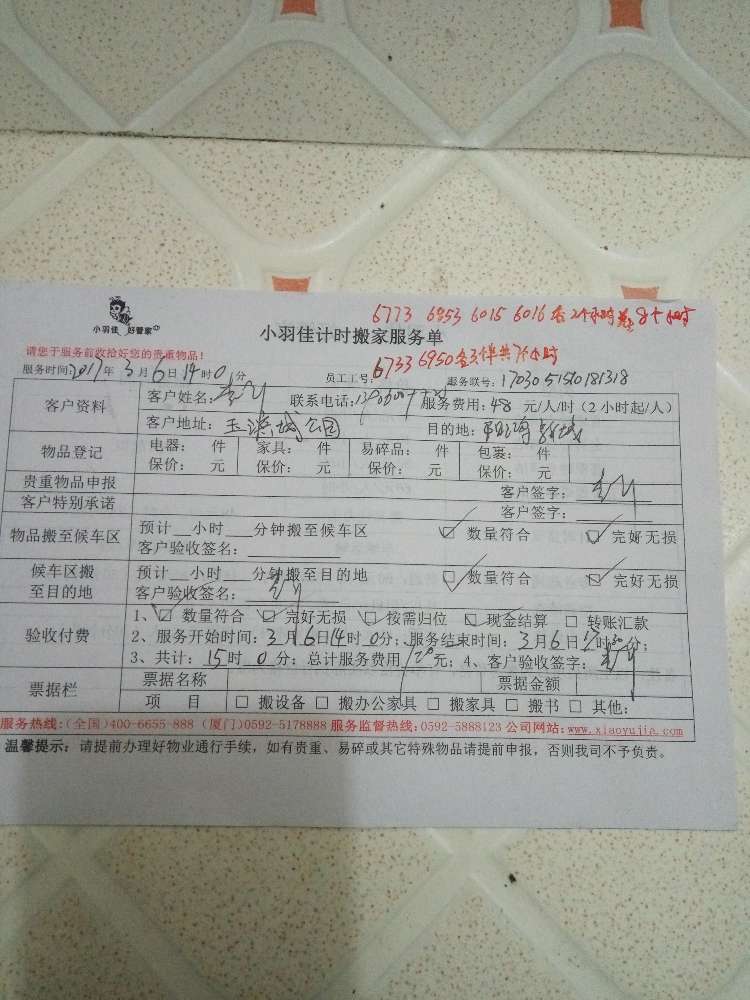 小羽佳 好管家
6773 6953 6015 6016 各2个小时 共8个小时
小羽佳计时搬家服务单
请您于服务前收拾好您的贵重物品！
6733 6950 共7个小时
服务时间:2017年3月6日14时0分 员工工号: 服务联号:
客户资料 客户姓名: 联系电话: 服务费用:48元/人/时（2小时起/人）
客户地址: 公园 目的地:
物品登记 电器: 件 家具: 件 易碎品: 件 包裹: 件
保价: 元 保价: 元 保价: 元 保价: 元
贵重物品申报 客户签字:
客户特别承诺 客户签字:
物品搬至候车区 预计__小时___分钟搬至候车区 数量符合 完好无损
客户验收签名:
候车区搬至目的地 预计__小时___分钟搬至目的地 数量符合 完好无损
客户验收签名:
验收付费 1、数量符合 完好无损 按需归位 现金结算 □ 转账汇款
2、服务开始时间: 3月6日14时0分; 服务结束时间: 3月6日17时30分;
3、共计: 15时0分; 总计服务费用 720元; 4、客户验收签字:
票据栏 票据名称 票据金额
项 目 □ 搬设备 □ 搬办公家具 □ 搬家具 □ 搬书 □ 其他:
服务热线:(全国)400-6655-888 (厦门)0592-5178888 服务监督热线:0592-5888123 公司网站:www.xiaoyujia.com
温馨提示: 请提前办理好物业通行手续，如有贵重、易碎或其它特殊物品请提前申报，否则我司不予负责。